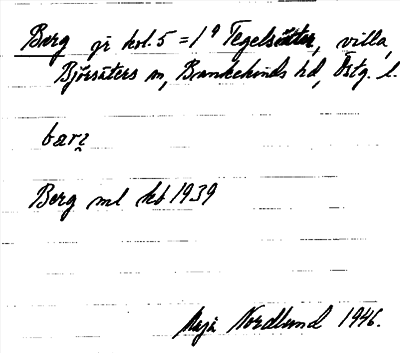 Berg gd kol. 5 = 1⁹ Tegelsätter, villa,
Björsäters sn, Bankekinds hd, Östg. l.
bærʒ
Berg ml kb 1939
Maja Nordlund 1946.